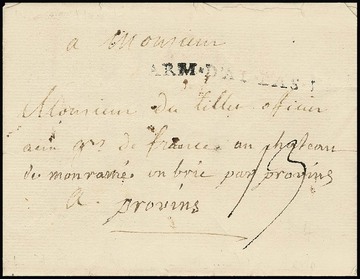 a Monsieur
ARM. D'ALSAS
Monsieur du tillet officier
aux de france au chateau
de monramé en brie par provins
a provins
13